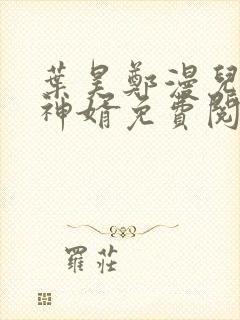 葉昊鄭漫兒
神婿免費閱
羅莊